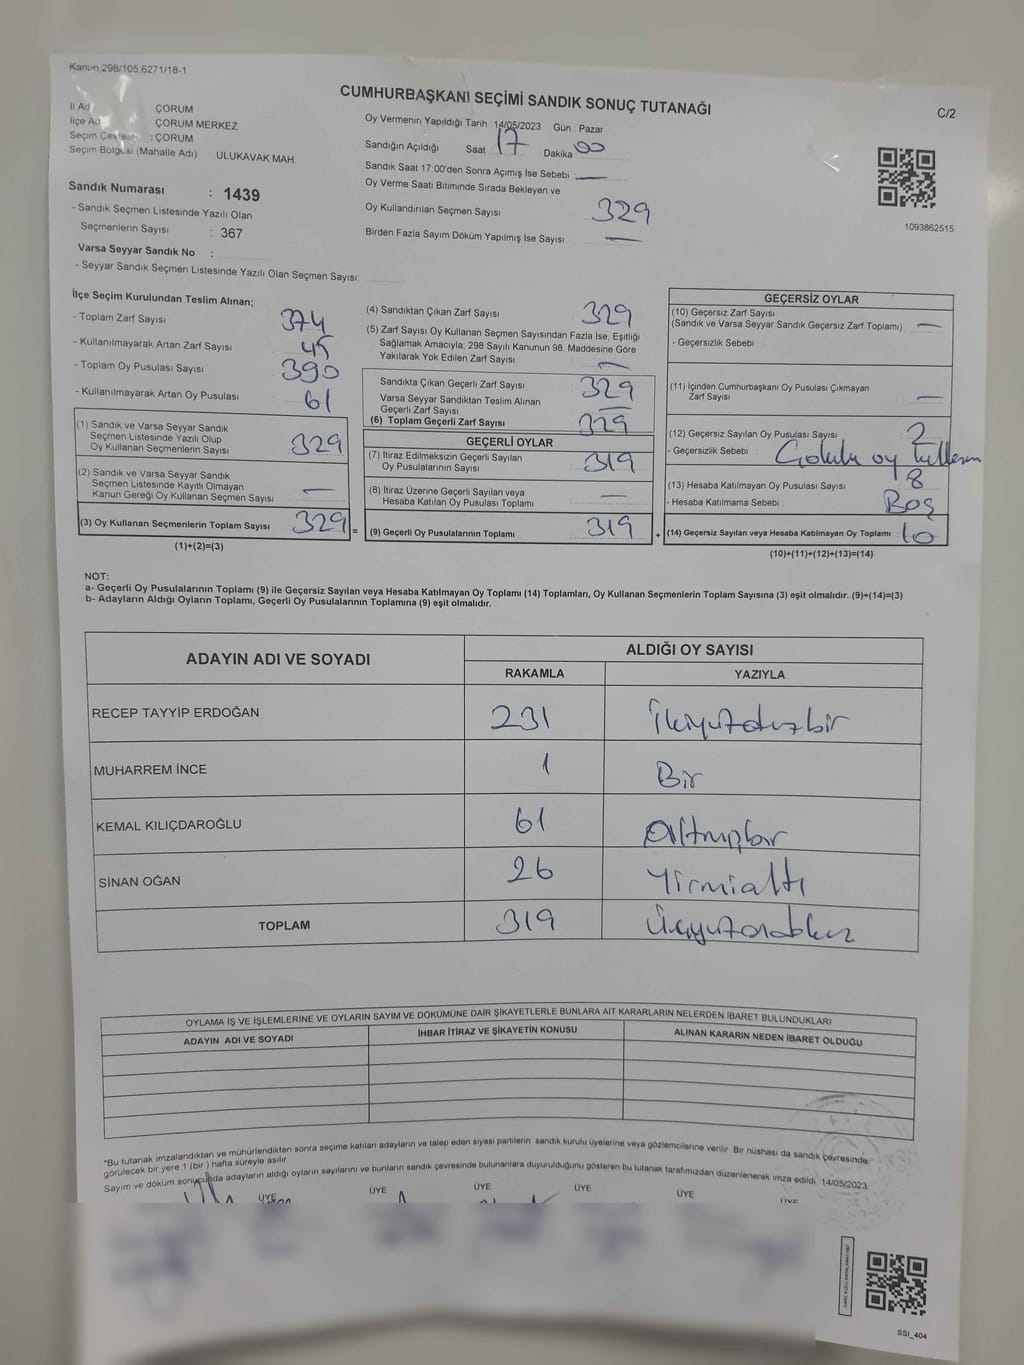 Kanun 298/105,6271/18-1
CUMHURBAŞKANI SEÇİMİ SANDIK SONUÇ TUTANAĞI
C/2
İl Ad ÇORUM
İlçe Ad ÇORUM MERKEZ
Seçim Çevresi : ÇORUM
Seçim Bölgesi (Mahalle Adı) ULUKAVAK MAH
Sandık Numarası : 1439
- Sandık Seçmen Listesinde Yazılı Olan
Seçmenlerin Sayısı : 367
Varsa Seyyar Sandık No :
- Seyyar Sandık Seçmen Listesinde Yazılı Olan Seçmen Sayısı:
Oy Vermenin Yapıldığı Tarih 14/05/2023 Gün : Pazar
Sandığın Açıldığı Saat 17 Dakika 00
Sandık Saat 17:00'den Sonra Açılmış İse Sebebi —
Oy Verme Saati Bitiminde Sırada Bekleyen ve
Oy Kullandırılan Seçmen Sayısı 329
Birden Fazla Sayım Döküm Yapılmış İse Sayısı —
1093862515
İlçe Seçim Kurulundan Teslim Alınan;
- Toplam Zarf Sayısı 374
- Kullanılmayarak Artan Zarf Sayısı 45
- Toplam Oy Pusulası Sayısı 390
- Kullanılmayarak Artan Oy Pusulası 61
(1) Sandık ve Varsa Seyyar Sandık
Seçmen Listesinde Yazılı Olup
Oy Kullanan Seçmenlerin Sayısı 329
(2) Sandık ve Varsa Seyyar Sandık
Seçmen Listesinde Kayıtlı Olmayan
Kanun Gereği Oy Kullanan Seçmen Sayısı —
(3) Oy Kullanan Seçmenlerin Toplam Sayısı 329 =
(1)+(2)=(3)
(4) Sandıktan Çıkan Zarf Sayısı 329
(5) Zarf Sayısı Oy Kullanan Seçmen Sayısından Fazla İse, Eşitliği
Sağlamak Amacıyla, 298 Sayılı Kanunun 98. Maddesine Göre
Yakılarak Yok Edilen Zarf Sayısı —
Sandıkta Çıkan Geçerli Zarf Sayısı 329
Varsa Seyyar Sandıktan Teslim Alınan
Geçerli Zarf Sayısı —
(6) Toplam Geçerli Zarf Sayısı 329
GEÇERLİ OYLAR
(7) İtiraz Edilmeksizin Geçerli Sayılan
Oy Pusulalarının Sayısı 319
(8) İtiraz Üzerine Geçerli Sayılan veya
Hesaba Katılan Oy Pusulası Toplamı —
(9) Geçerli Oy Pusulalarının Toplamı 319 +
GEÇERSİZ OYLAR
(10) Geçersiz Zarf Sayısı
(Sandık ve Varsa Seyyar Sandık Geçersiz Zarf Toplamı) —
- Geçersizlik Sebebi
(11) İçinden Cumhurbaşkanı Oy Pusulası Çıkmayan
Zarf Sayısı —
(12) Geçersiz Sayılan Oy Pusulası Sayısı 2
- Geçersizlik Sebebi : oy
(13) Hesaba Katılmayan Oy Pusulası Sayısı 8
- Hesaba Katılmama Sebebi Boş
(14) Geçersiz Sayılan veya Hesaba Katılmayan Oy Toplamı : 10
(10)+(11)+(12)+(13)=(14)
NOT:
a- Geçerli Oy Pusulalarının Toplamı (9) ile Geçersiz Sayılan veya Hesaba Katılmayan Oy Toplamı (14) Toplamları, Oy Kullanan Seçmenlerin Toplam Sayısına (3) eşit olmalıdır. (9)+(14)=(3)
b- Adayların Aldığı Oyların Toplamı, Geçerli Oy Pusulalarının Toplamına (9) eşit olmalıdır.
ADAYIN ADI VE SOYADI ALDIĞI OY SAYISI
RAKAMLA YAZIYLA
RECEP TAYYİP ERDOĞAN 231 İkiyüzotuzbir
MUHARREM İNCE 1 Bir
KEMAL KILIÇDAROĞLU 61 Altmışbir
SİNAN OĞAN 26 Yirmialtı
TOPLAM 319 Üçyüzondokuz
OYLAMA İŞ VE İŞLEMLERİNE VE OYLARIN SAYIM VE DÖKÜMÜNE DAİR ŞİKAYETLERLE BUNLARA AİT KARARLARIN NELERDEN İBARET BULUNDUKLARI
ADAYIN ADI VE SOYADI İHBAR İTİRAZ VE ŞİKAYETİN KONUSU ALINAN KARARIN NEDEN İBARET OLDUĞU
*Bu tutanak imzalandıktan ve mühürlendikten sonra seçime katılan adayların ve talep eden siyasi partilerin sandık kurulu üyelerine veya gözlemcilerine verilir. Bir nüshası da sandık çevresinde
görülecek bir yere 1 (bir) hafta süreyle asılır.
Sayım ve döküm sonucunda adayların aldığı oyların sayılarını ve bunların sandık çevresinde bulunanlara duyurulduğunu gösteren bu tutanak tarafımızdan düzenlenerek imza edildi. 14/05/2023
ÜYE ÜYE ÜYE ÜYE ÜYE ÜYE
SSI_404